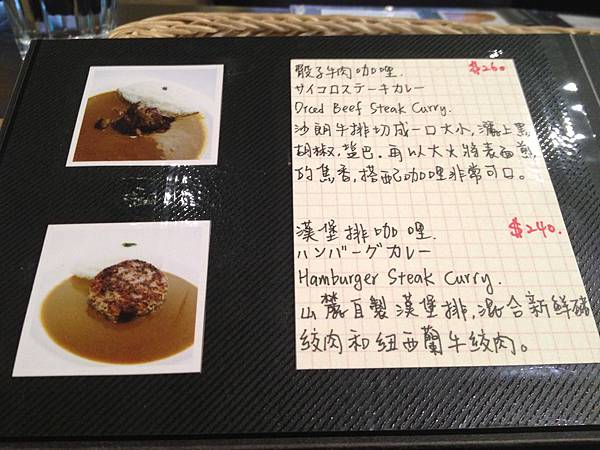 骰子牛肉咖哩. $260
サイコロステーキカレー
Diced Beef Steak Curry.
沙朗牛排切成一口大小,灑上黑
胡椒,塩巴.再以大火將表面煎
的焦香,搭配咖哩非常可口。
漢堡排咖哩. $240.
ハンバーグカレー
Hamburger Steak Curry.
山麓自製漢堡排,混合新鮮豬
絞肉和紐西蘭牛絞肉。